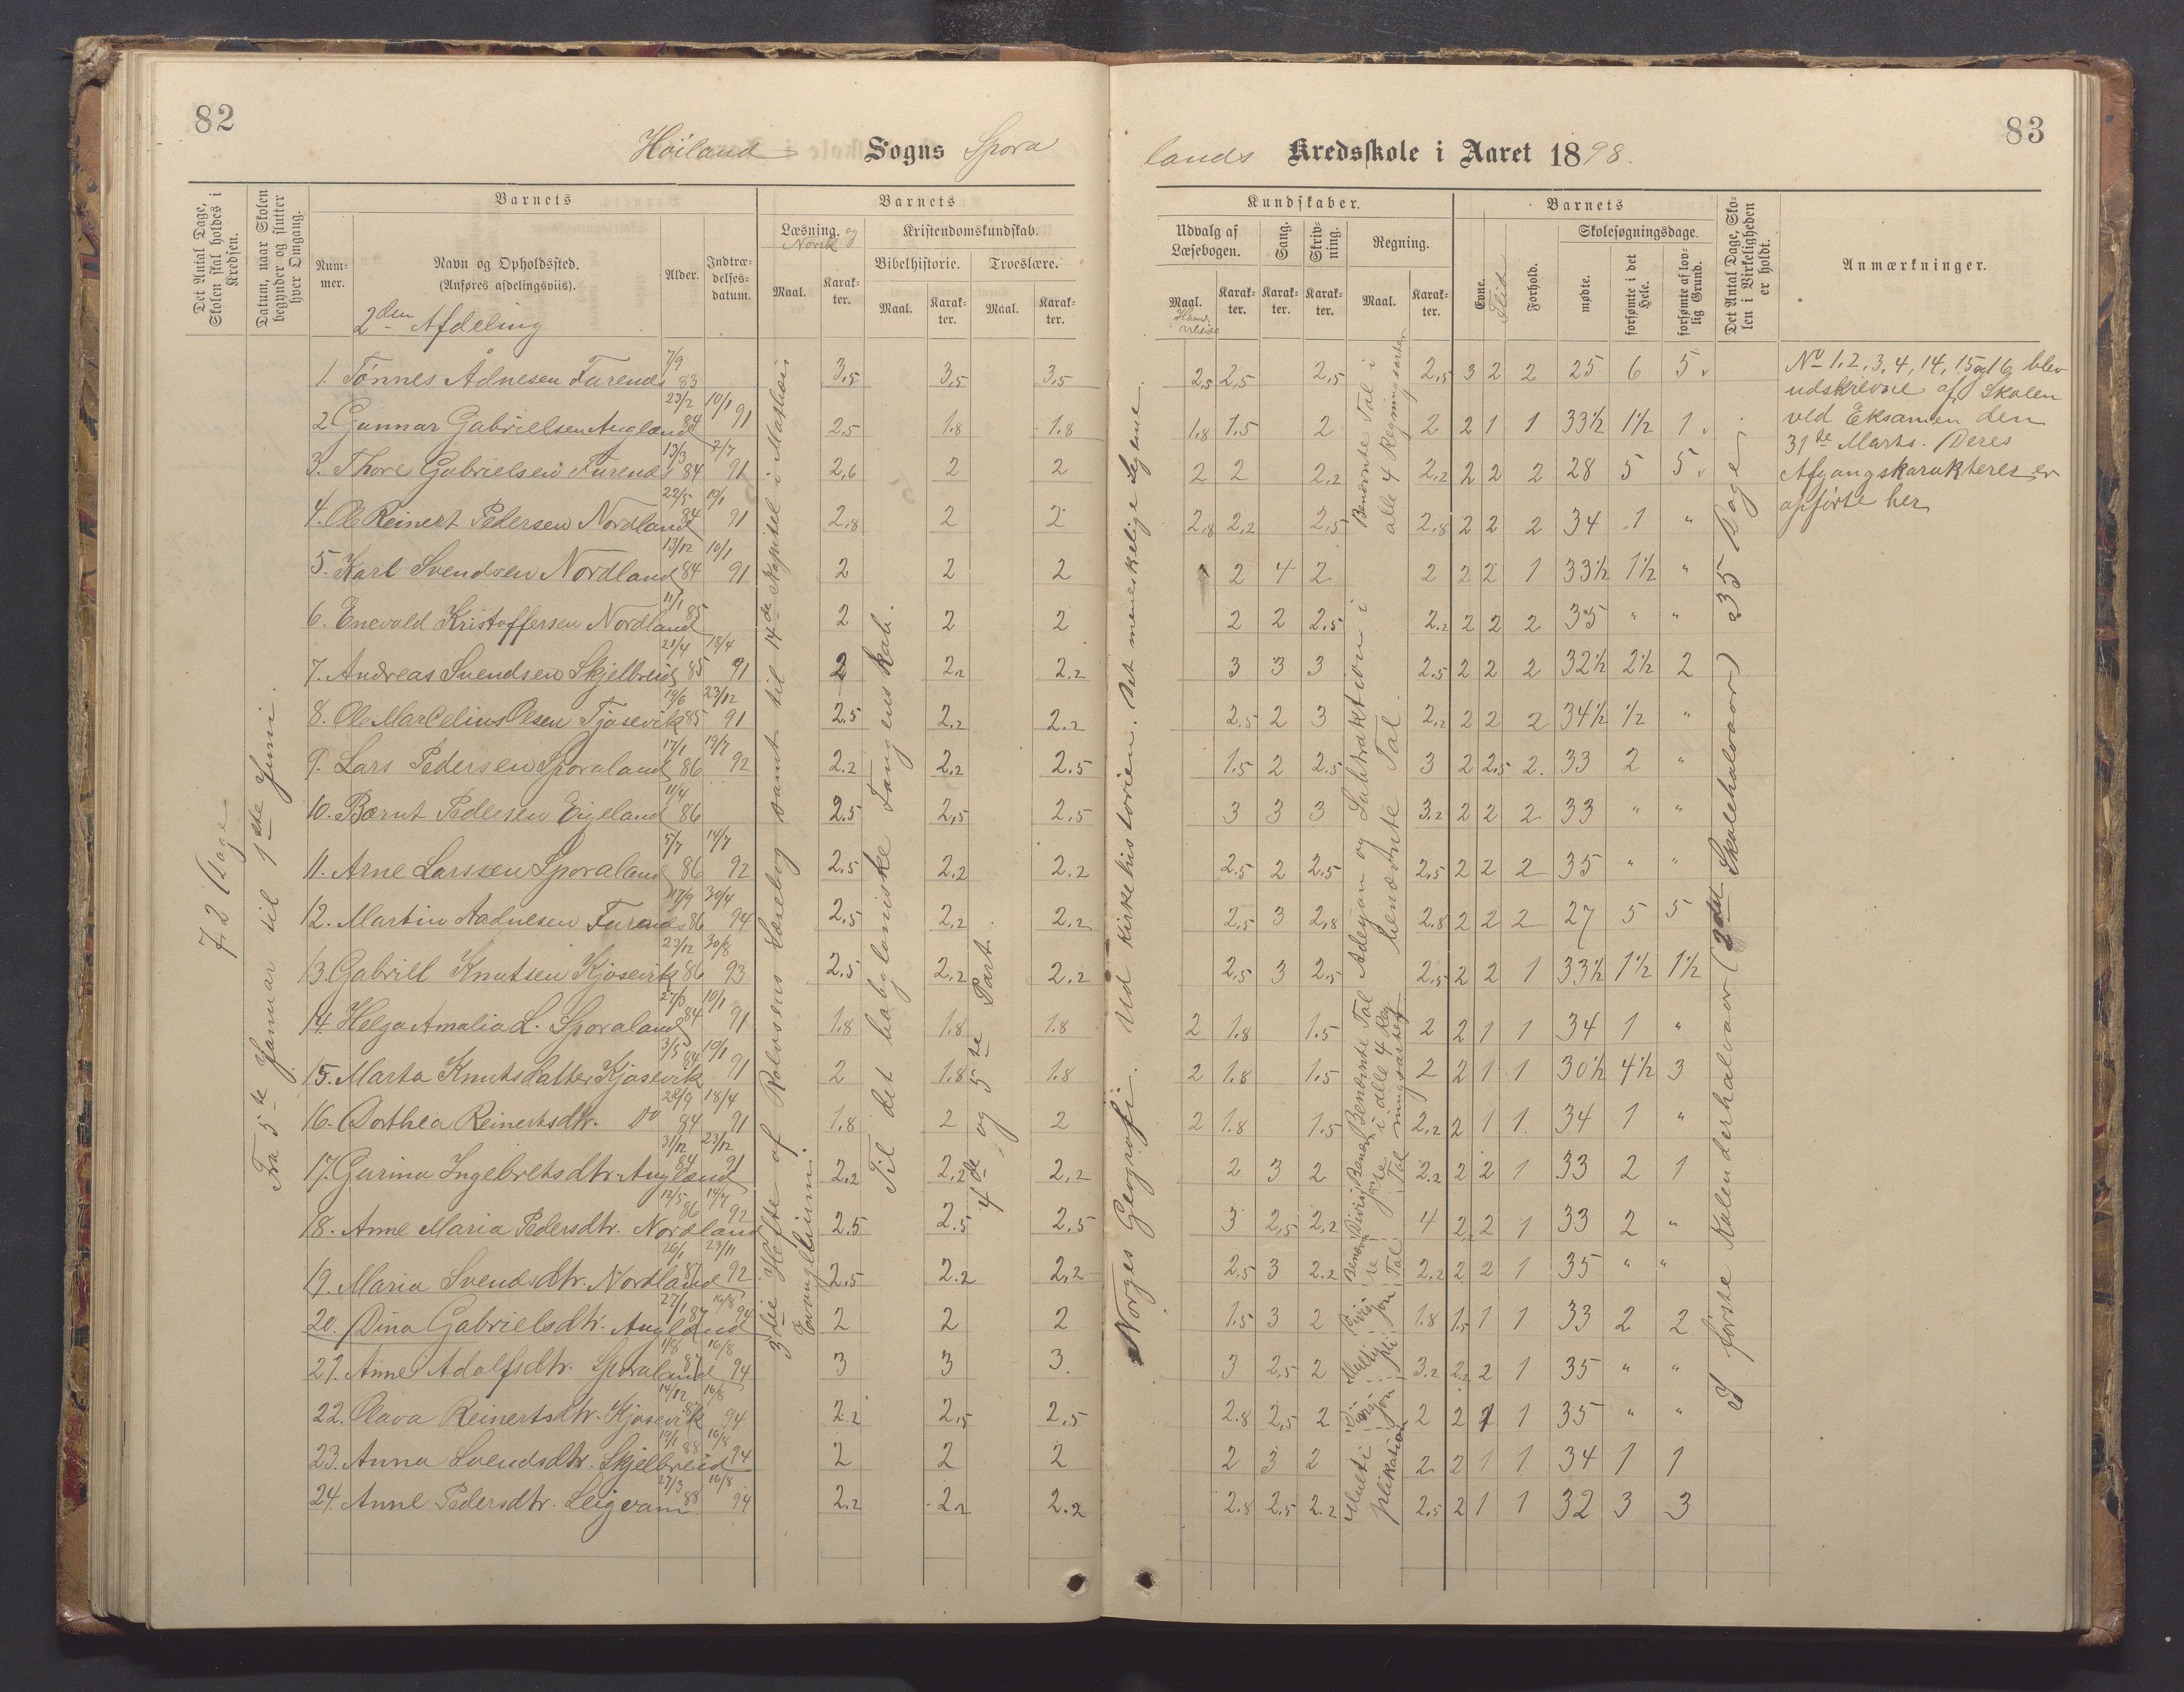 82
83
Höiland Sogns Spora
lands Kredsskole i Aaret 1898.
Det Antal Dage, Skolen skal holdes i Kredsen.
Datum, naar Skolen begynder og slutter hver Omgang.
Barnets
Num-mer.
Navn og Opholdssted.
(Anføres afdelingsviis).
Alder.
Indtræ-delses-datum.
Barnets
Læsning. og Norsk
Maal.
Karak-ter.
Kristendomskundskab.
Bibelhistorie.
Troeslære.
Maal.
Karak-ter.
Maal.
Karak-ter.
Kundskaber.
Udvalg af Læsebogen.
Sang.
Skriv-ning.
Regning.
Maal.
Karak-ter.
Karak-ter.
Karak-ter.
Maal.
Karak-ter.
Barnets
Evne.
Flid
Forhold.
Skolesøgningsdage.
mødte.
forsømte i det Hele.
forsømte af lov-lig Grund.
Det Antal Dage, Sko-len i Virkeligheden er holdt.
Anmærkninger.
2den Afdeling
72 Dage
Fra 5te Januar til 1ste Juni.
3die Hefte af Rolvsens Læsebog samt til 14de Kapitel i Mathæi Evangelium.
Til det babyloniske Fangenskab.
4de og 5te Part.
Norges Geografi. Ud kirkehistorien. Det menneskelige Legeme.
Benævnte Tal i alle 4 Regningsarter
Adeyon og Subtraktion i benævnte Tal.
I første Kalenderhalvaar (2det Skolehalvaar) 35 Dage
1. Tönnes Ådnesen Furenes 7/9 83 3,5 3,5 3,5 2,5 2,5 2,5 2,5 3 2 2 25 6 5
2 Gunnar Gabrielsen Augland 23/2 84 10/1 91 2,5 1.8 1.8 1.8 1.5 2 2 2 1 1 33½ 1½ 1
3. Thore Gabrielsen Furenes 13/3 84 2/7 91 2,6 2 2 2 2 2,2 2,2 2 2 2 28 5 5
4. Ole Reinert Pedersen Nordland 22/5 84 10/1 91 2,8 2 2 2,8 2,2 2,5 2,8 2 2 2 34 1 "
5. Karl Svendsen Nordland 13/12 84 10/1 91 2 2 2 2 4 2 2 2 2 1 33½ 1½ "
6. Enevald Kristoffersen Nordland 11/1 85 2 2 2 2 2 2.5 2.2 2 2 2 35 " "
7. Andreas Svendsen Skjelbreid 21/4 85 18/4 91 2 2,2 2.2 3 3 3 2.5 2 2 2 32½ 2½ 2
8. Ole Marcelius Olsen Tjosevik 19/6 85 23/12 91 2.5 2,2 2.2 2.5 2 3 2,2 2 2 2 34½ ½ "
9. Lars Pedersen Sporaland 17/1 86 19/7 92 2.2 2,2 2.5 1.5 2 2.5 3 2 2.5 2. 33 2 "
10. Bærnt Pedersen Eigeland 11/4 86 2.5 2,5 2,5 3 3 3 3.2 2 2 2 33 " "
11. Arne Larssen Sporaland 5/7 86 14/7 92 2.5 2.2 2.2 2.5 2 2.5 2,5 2 2 2 35 " "
12. Martin Aadnesen Furenes 17/9 86 30/4 94 2,5 2,2 2.2 2,5 3 2,8 2.8 2 2 2 27 5 5
13. Gabriel Knutsen Kjosevik 23/12 86 30/8 93 2.5 2,2 2.2 2,5 3 2,5 2,5 2 2 1 33½ 1½ 1½
14. Helga Amalia L. Sporaland 27/3 84 10/1 91 1.8 1.8 1.8 2 1.8 1.5 2 2 1 1 34 1 "
15. Marta Knutsdatter Kjosevik 3/5 84 10/1 91 2 1.8 1.8 2 1.8 1.5 2 2 1 1 30½ 4½ 3
16. Dorthea Reinertsdtr. Do 20/9 84 18/4 91 1.8 2 2 2 1.8 1.5 2.2 2 1 1. 34 1 "
17. Gurina Ingebretsdtr. Augland 31/12 84 23/12 91 2,2 2,2 2,2 2 3 2 2.2 2 2 1 33 2 1
18. Anne Maria Pedersdtr. Nordland 12/5 86 14/7 92 2.5 2.5 2,5 3 2,5 2,2 4 2,2 2 1 33 2 "
19. Maria Svendsdtr. Nordland 26/1 87 23/11 92 2.5 2.2 2,2 2,5 3 2.2 2,2 2 2 1 35 " "
20. Dina Gabrielsdtr. Augland 27/1 87 16/8 94 2 2 2 1.5 3 2 1.8 1.5 1 1 33 2 2
21. Anne Adolfsdtr. Sporaland 1/8 87 16/8 94 3 3 3. 3 2,5 2 3.2 2.2 2 1 35 " "
22. Olava Reinertsdtr. Kjosevik 14/12 87 16/8 94 2.2 2,5 2,5 2.8 2,5 2 2 2 1 1 35 " "
23. Anna Svendsdtr. Skjelbreid 19/1 88 16/8 94 2 2 2 2 3 2 2 2 1 1 34 1 1
24. Anne Pedersdtr. Leigvam 27/3 88 16/8 94 2.2 2.2 2.2 2.8 2.5 2.2 2.5 2 1 1 32 3 3
No 1, 2, 3, 4, 14, 15 og 16 blev
udskrevne af Skolen
ved Eksamen den
31te Marts. Deres
Afgangskarakterer er
opførte her